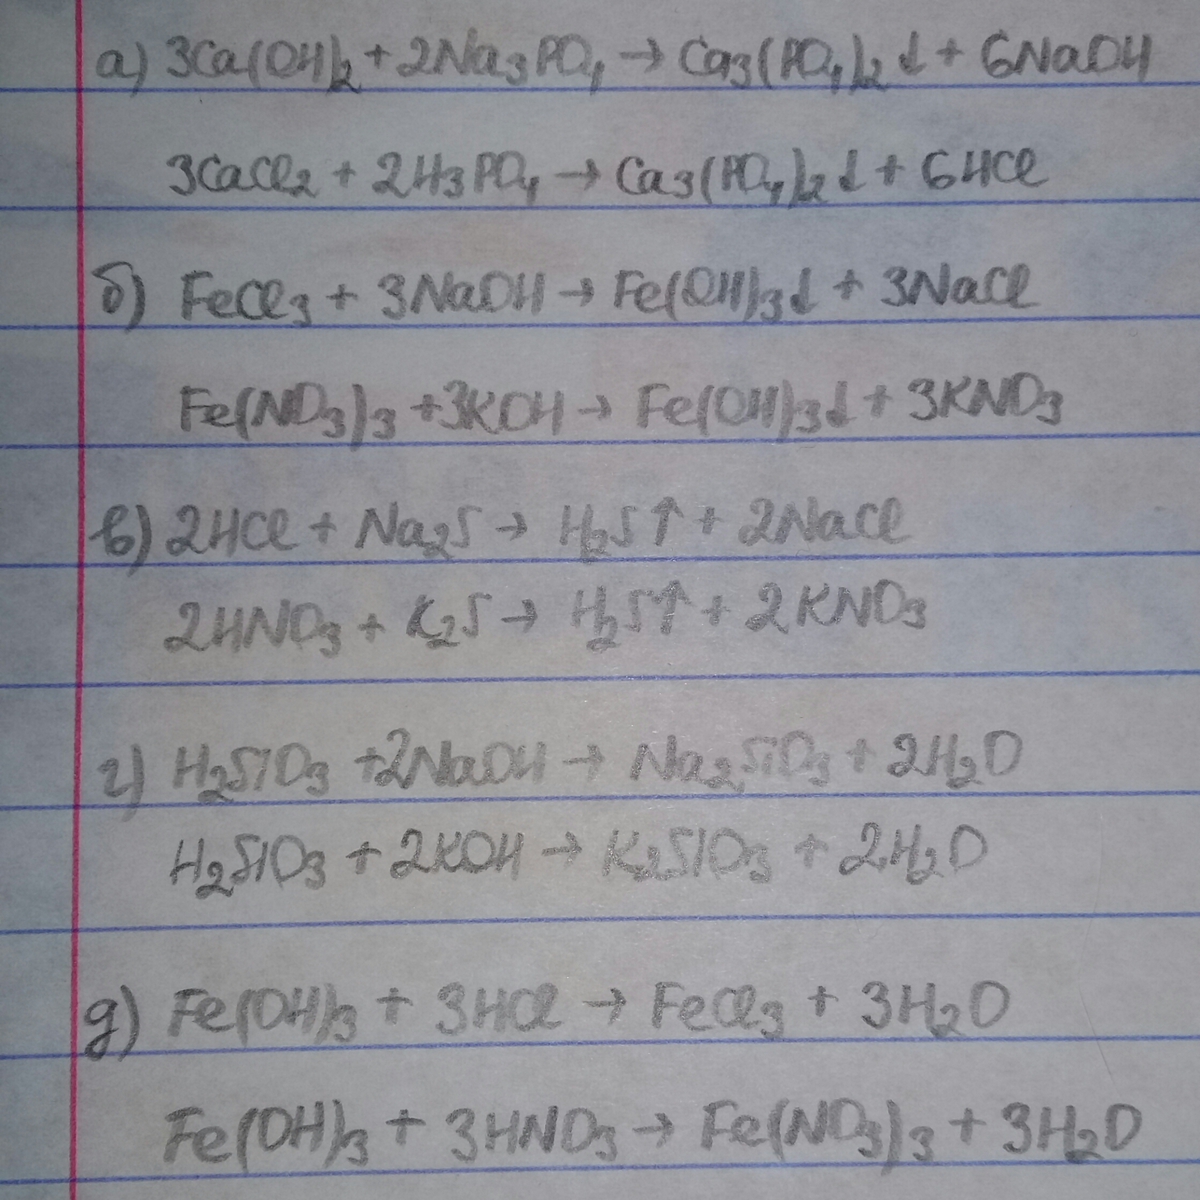 а) 3Ca(OH)₂ + 2Na₃PO₄ → Ca₃(PO₄)₂↓ + 6NaOH
3CaCl₂ + 2H₃PO₄ → Ca₃(PO₄)₂↓ + 6HCl
б) FeCl₃ + 3NaOH → Fe(OH)₃↓ + 3NaCl
Fe(NO₃)₃ + 3KOH → Fe(OH)₃↓ + 3KNO₃
в) 2HCl + Na₂S → H₂S↑ + 2NaCl
2HNO₃ + K₂S → H₂S↑ + 2KNO₃
г) H₂SiO₃ + 2NaOH → Na₂SiO₃ + 2H₂O
H₂SiO₃ + 2KOH → K₂SiO₃ + 2H₂O
д) Fe(OH)₃ + 3HCl → FeCl₃ + 3H₂O
Fe(OH)₃ + 3HNO₃ → Fe(NO₃)₃ + 3H₂O